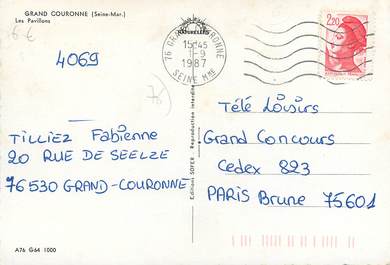 GRAND COURONNE (Seine-Mar.)
Les Pavillons
6 €
4069
NATURELLES
76 GRAND COURONNE
15H45
1-9
1987
SEINE MME
2,20
76
TILLIEZ Fabienne
20 RUE DE SEELZE
76530 GRAND-COURONNE
Editions SOFER - Reproduction interdite
Télé Loisirs
Grand Concours
Cedex 823
PARIS Brune 75601
A76 G64 1000